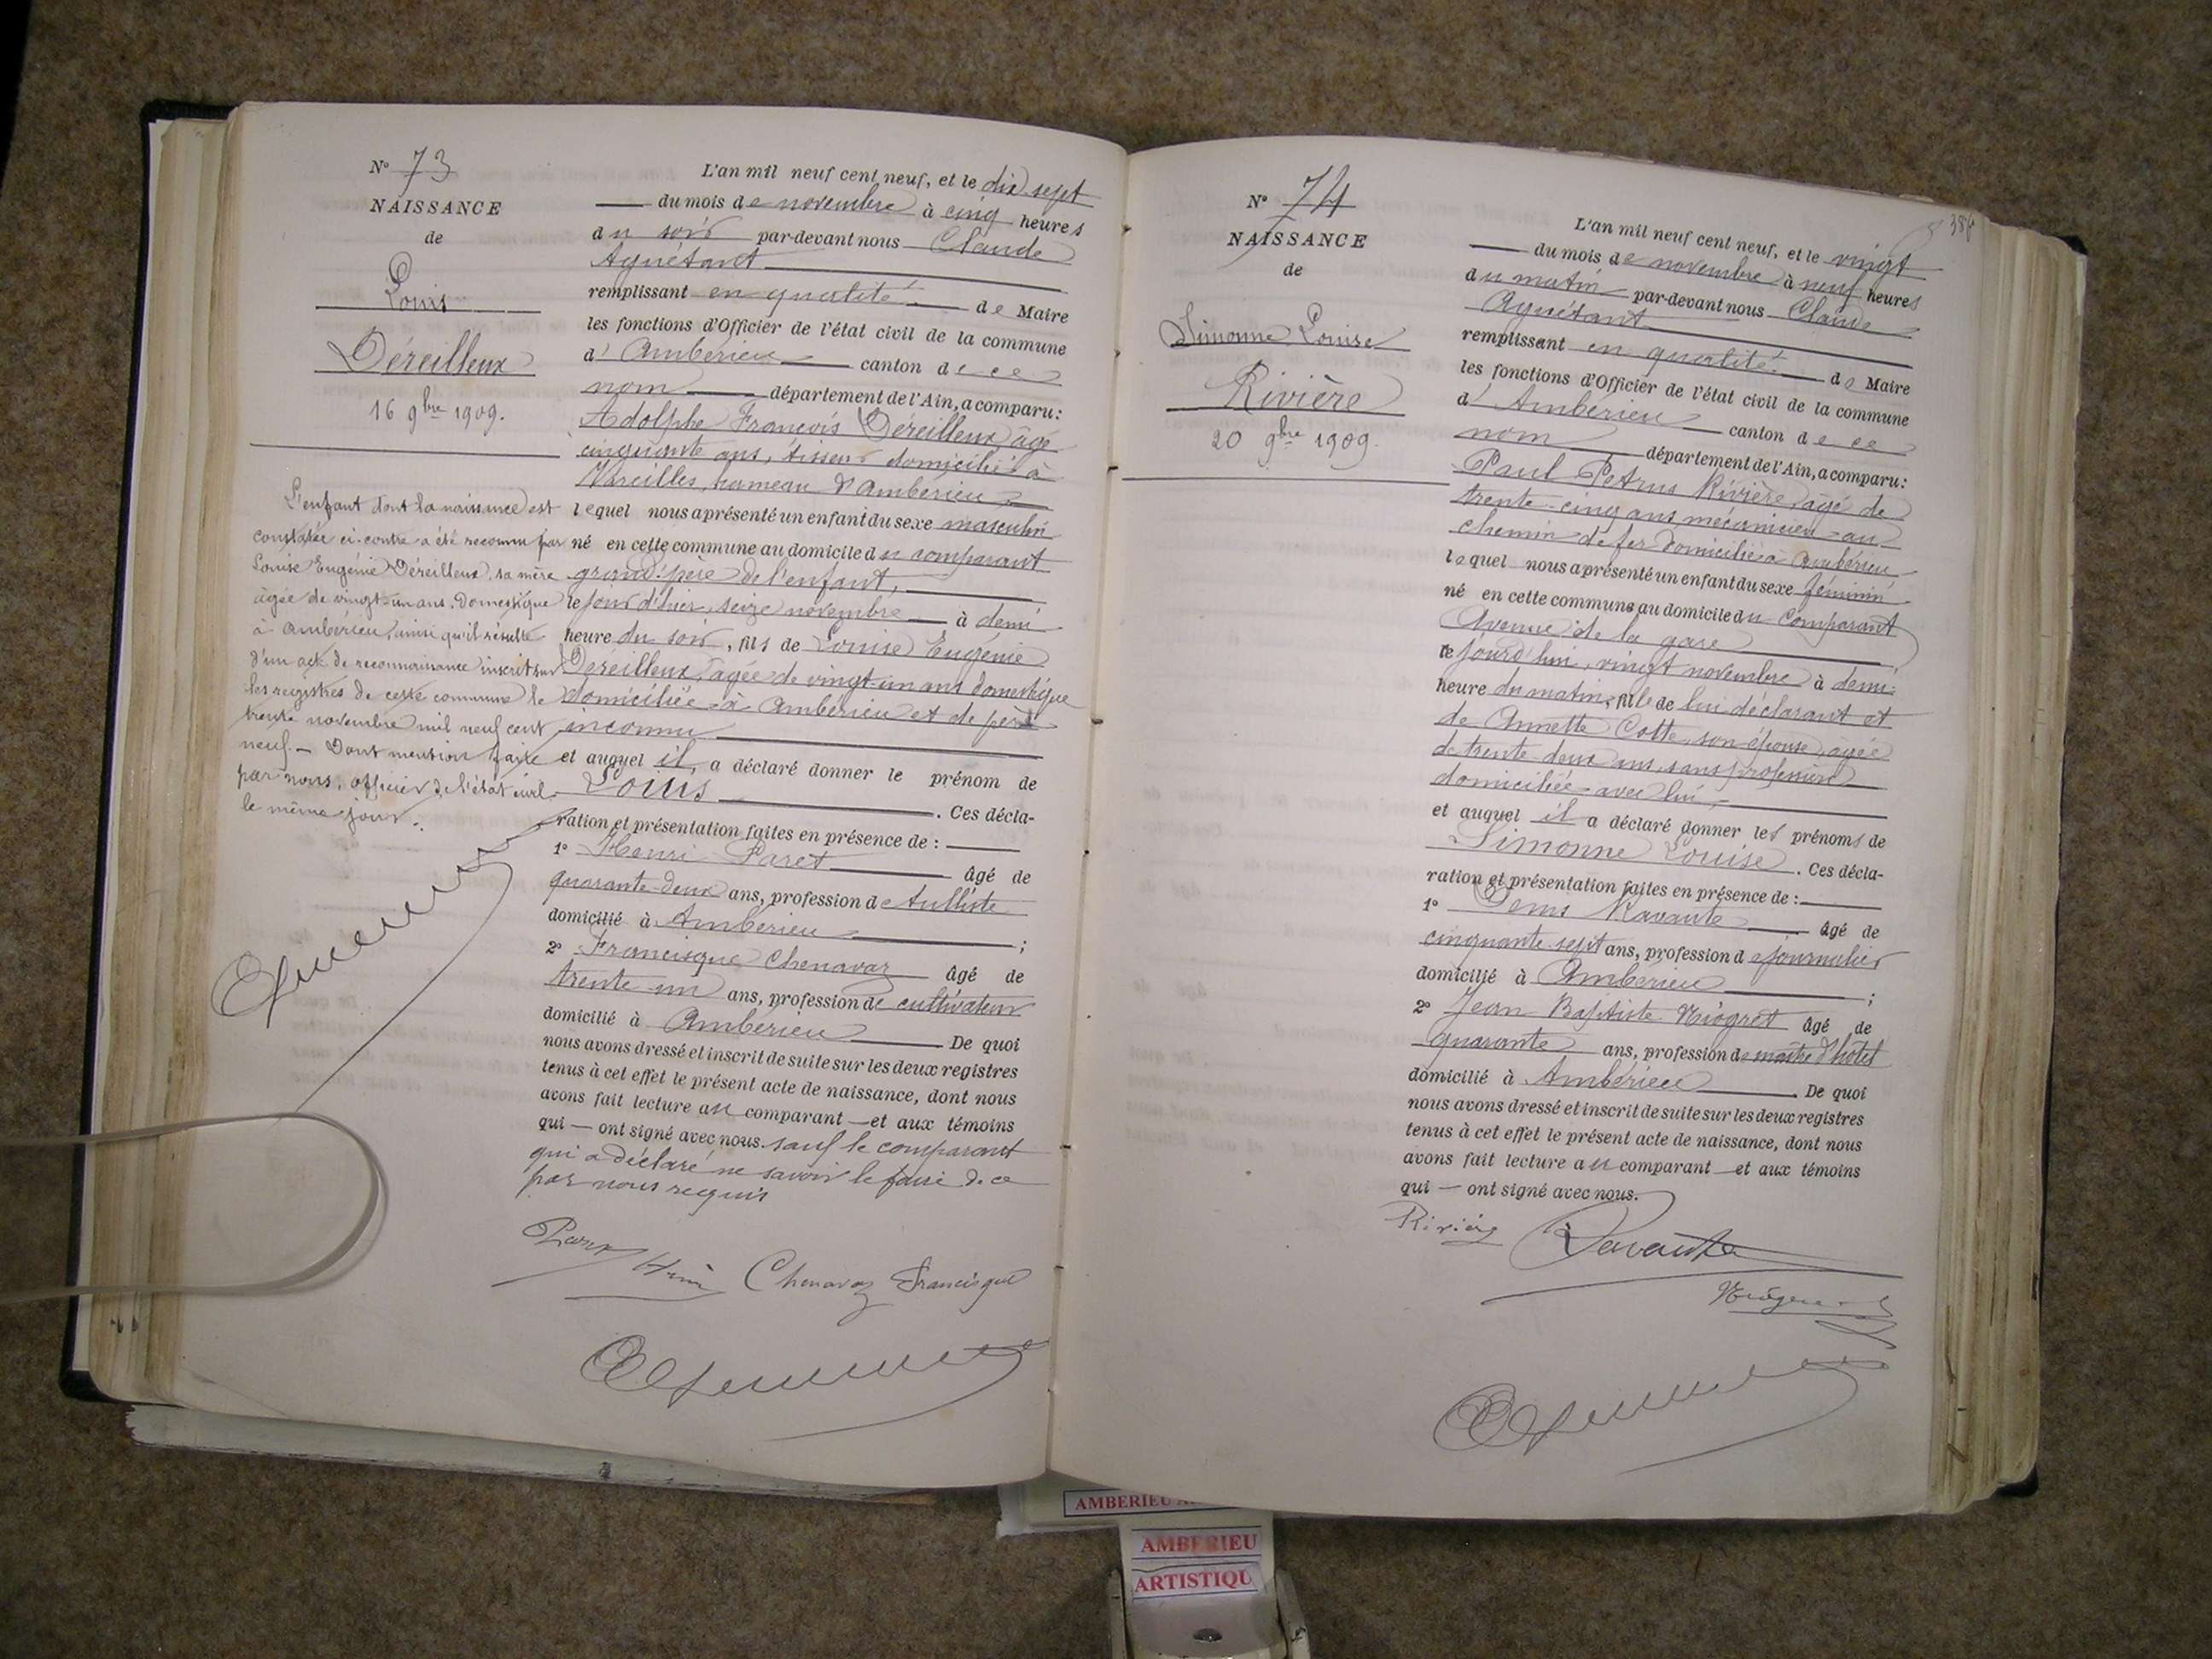 N° 73
NAISSANCE
de
Louis
Déreilleux
16 9bre 1909.
L'enfant dont la naissance est
constatée ci-contre a été reconnu par
Louise Eugénie Déreilleux, sa mère
âgée de vingt-un ans, domestique
à Ambérieu, ainsi qu'il résulte
d'un acte de reconnaissance inscrit sur
les registres de cette commune le
trente novembre mil neuf cent
neuf. — Dont mention faite
par nous, officier de l'état civil
le même jour.
L'an mil neuf cent neuf, et le dix sept
du mois de novembre à cinq heures
du soir par-devant nous Claude
Aguétant
remplissant en qualité de Maire
les fonctions d'Officier de l'état civil de la commune
d'Ambérieu canton de ce
nom département de l'Ain, a comparu :
Adolphe François Déreilleux âgé
cinquante ans, tisseur domicilié à
Vareilles, hameau d'Ambérieu
lequel nous a présenté un enfant du sexe masculin
né en cette commune au domicile du comparant
grand'père de l'enfant,
le jour d'hier, seize novembre à demi
heure du soir, fils de Louise Eugénie
Déreilleux, âgée de vingt-un ans domestique
domiciliée à Ambérieu et de père
inconnu
et auquel il a déclaré donner le prénom de
Louis. Ces décla-
ration et présentation faites en présence de :
1° Henri Paret âgé de
quarante-deux ans, profession de tulliste
domicilié à Ambérieu ;
2° Francisque Chenavaz âgé de
trente-un ans, profession de cultivateur
domicilié à Ambérieu De quoi
nous avons dressé et inscrit de suite sur les deux registres
tenus à cet effet le présent acte de naissance, dont nous
avons fait lecture au comparant — et aux témoins
qui — ont signé avec nous. sauf le comparant
qui a déclaré ne savoir le faire de ce
par nous requis
Paret Henri Chenavaz Francisque
N° 74
NAISSANCE
de
Simonne Louise
Rivière
20 9bre 1909.
L'an mil neuf cent neuf, et le vingt
du mois de novembre à neuf heures
du matin par-devant nous Claude
Aguétant
remplissant en qualité de Maire
les fonctions d'Officier de l'état civil de la commune
d'Ambérieu canton de ce
nom département de l'Ain, a comparu :
Paul Petrus Rivière, âgé de
trente-cinq ans, mécanicien au
chemin de fer domicilié à Ambérieu
lequel nous a présenté un enfant du sexe féminin
né en cette commune au domicile du comparant
Avenue de la gare
le jourd'hui, vingt novembre à demi-
heure du matin, fille de lui déclarant et
de Annette Cotte, son épouse, âgée
de trente-deux ans, sans profession
domiciliée avec lui,
et auquel il a déclaré donner les prénoms de
Simonne Louise. Ces décla-
ration et présentation faites en présence de :
1° Denis Ravante âgé de
cinquante-sept ans, profession de journalier
domicilié à Ambérieu ;
2° Jean Baptiste Niogret âgé de
quarante ans, profession de maître d'hôtel
domicilié à Ambérieu. De quoi
nous avons dressé et inscrit de suite sur les deux registres
tenus à cet effet le présent acte de naissance, dont nous
avons fait lecture au comparant — et aux témoins
qui — ont signé avec nous.
Rivière
Niogret
AMBERIEU
AMBERIEU
ARTISTIQU